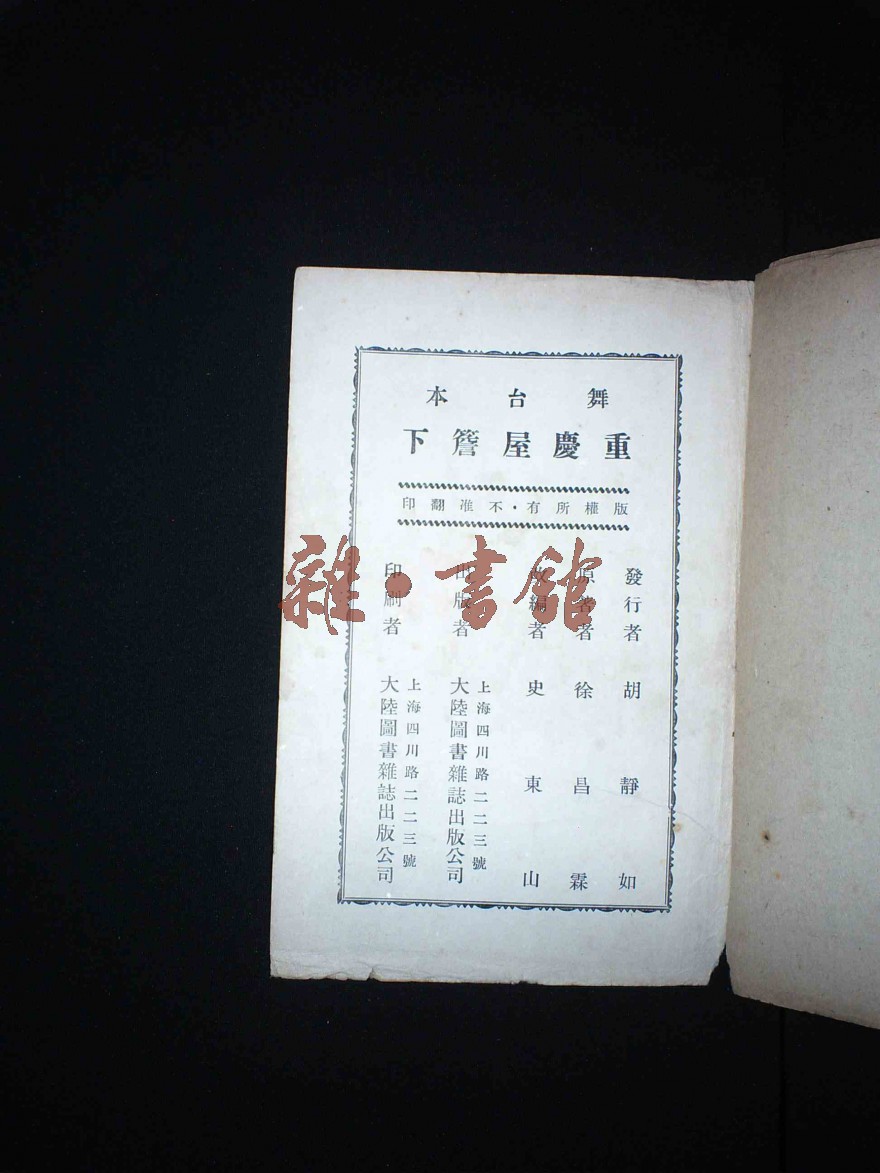 舞台本
重慶屋簷下
版權所有·不准翻印
發行者 胡靜如
原著者 徐昌霖
改編者 史東山
出版者 上海四川路二二三號
大陸圖書雜誌出版公司
印刷者 上海四川路二二三號
大陸圖書雜誌出版公司
雜·書館